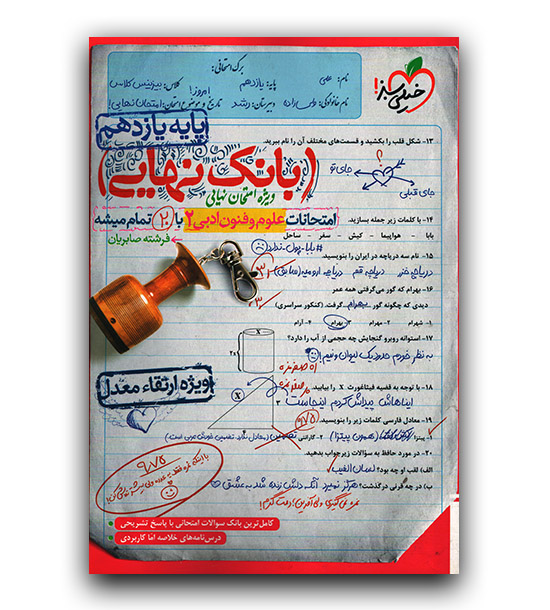 برگ امتحانی:
نام: علی
پایه: یازدهم
کلاس: بیزینس کلاس
نام خانوادگی:
دبیرستان: رشد
تاریخ و موضوع امتحان: امروز! امتحان نهایی!
خیلی سبز!
پایه یازدهم
(بانک نهایی)
ویژه امتحان نهایی
امتحانات علوم و فنون ادبی ۲ با ۲۰ تمام میشه
فرشته صابریان
۱۳- شکل قلب را بکشید و قسمت‌های مختلف آن را نام ببرید.
؟
جای تو
جای قبلی
۱۴- با کلمات زیر جمله بسازید.
بابا - هواپیما - کیش - سفر - ساحل
#بابا-پول-نداره
۱۵- نام سه دریاچه در ایران را بنویسید.
دریاچه خزر دریاچه قم دریاچه ارومیه (سابق)
۱۶- بهرام که گور می‌گرفتی همه عمر
دیدی که چگونه گور بهرام گرفت. (کنکور سراسری)
۱- شهرام ۲- مهرام ۳- بهرام ۴- آرام
۱۷- استوانه روبرو گنجایش چه حجمی از آب را دارد؟
به نظر خودم حدود یک لیوان و نیم!
x
2x
۱۸- با توجه به قضیه فیثاغورث x را بیابید.
ایناهاش پیداش کردم اینجاست
x
3
ویژه ارتقاء معدل
۱۹- معادل فارسی کلمات زیر را بنویسید.
۱- پیتزا
۲- گارانتی
۲۰- در مورد حافظ به سؤالات زیر جواب بدهید.
الف) لقب او چه بود؟ لسان الغیب
ب) در چه قرنی درگذشت؟ هرگز نمیرد آنکه دلش زنده شد به عشق
۹/۷۵
کامل‌ترین بانک سوالات امتحانی با پاسخ تشریحی
درس‌نامه‌های خلاصه اما کاربردی